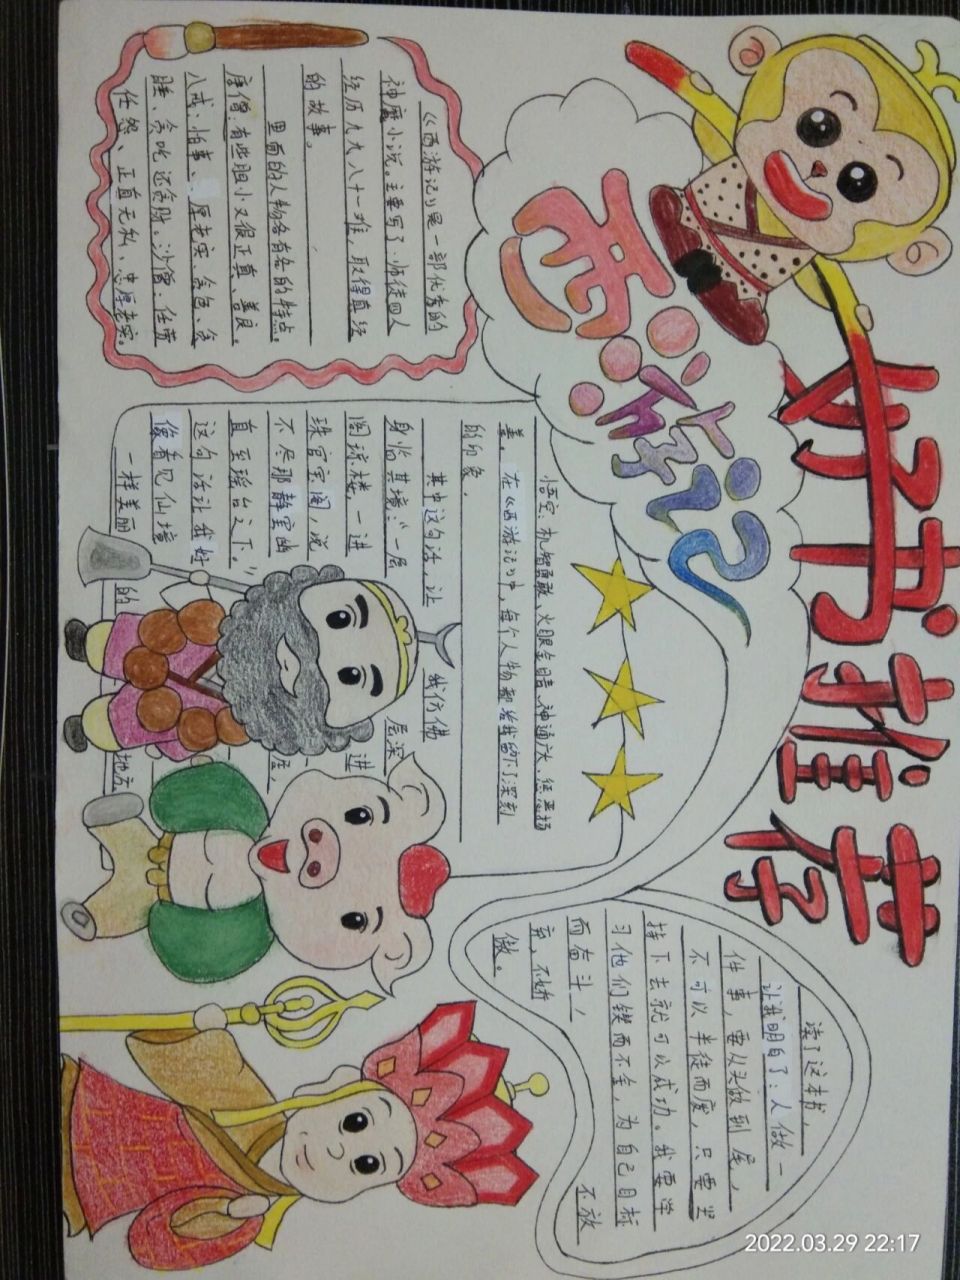 好书推荐
西游记
《西游记》是一部优秀的
神魔小说。主要写了:师徒四人
经历九九八十一难,取得真经
的故事。
里面的人物各有各的特点。
唐僧:有些胆小又很正真、善良。
八戒:怕事、厚老实、贪色、贪
睡、贪吃还贪财。沙僧:任劳
任怨、正直无私、忠厚老实。
悟空:机智勇敢、火眼金睛、神通广大、惩恶扬
善。在《西游记》中,每个人物都给我留下了深刻
的印象。
其中这句话,让我仿佛
身临其境:“一层层深
阁琼楼,一进进
珠宫贝阙,说
不尽那静室幽居,
直至瑶台之下。”
这句话让我好
像看见仙境
一样美丽的地方
读了这本书,
让我明白了:人做一
件事,要从头做到尾,
不可以半徒而废,只要坚
持下去就可以成功。我要学
习他们锲而不舍,为自己目标
而奋斗!不放
弃,不娇
傲。
2022.03.29 22:17